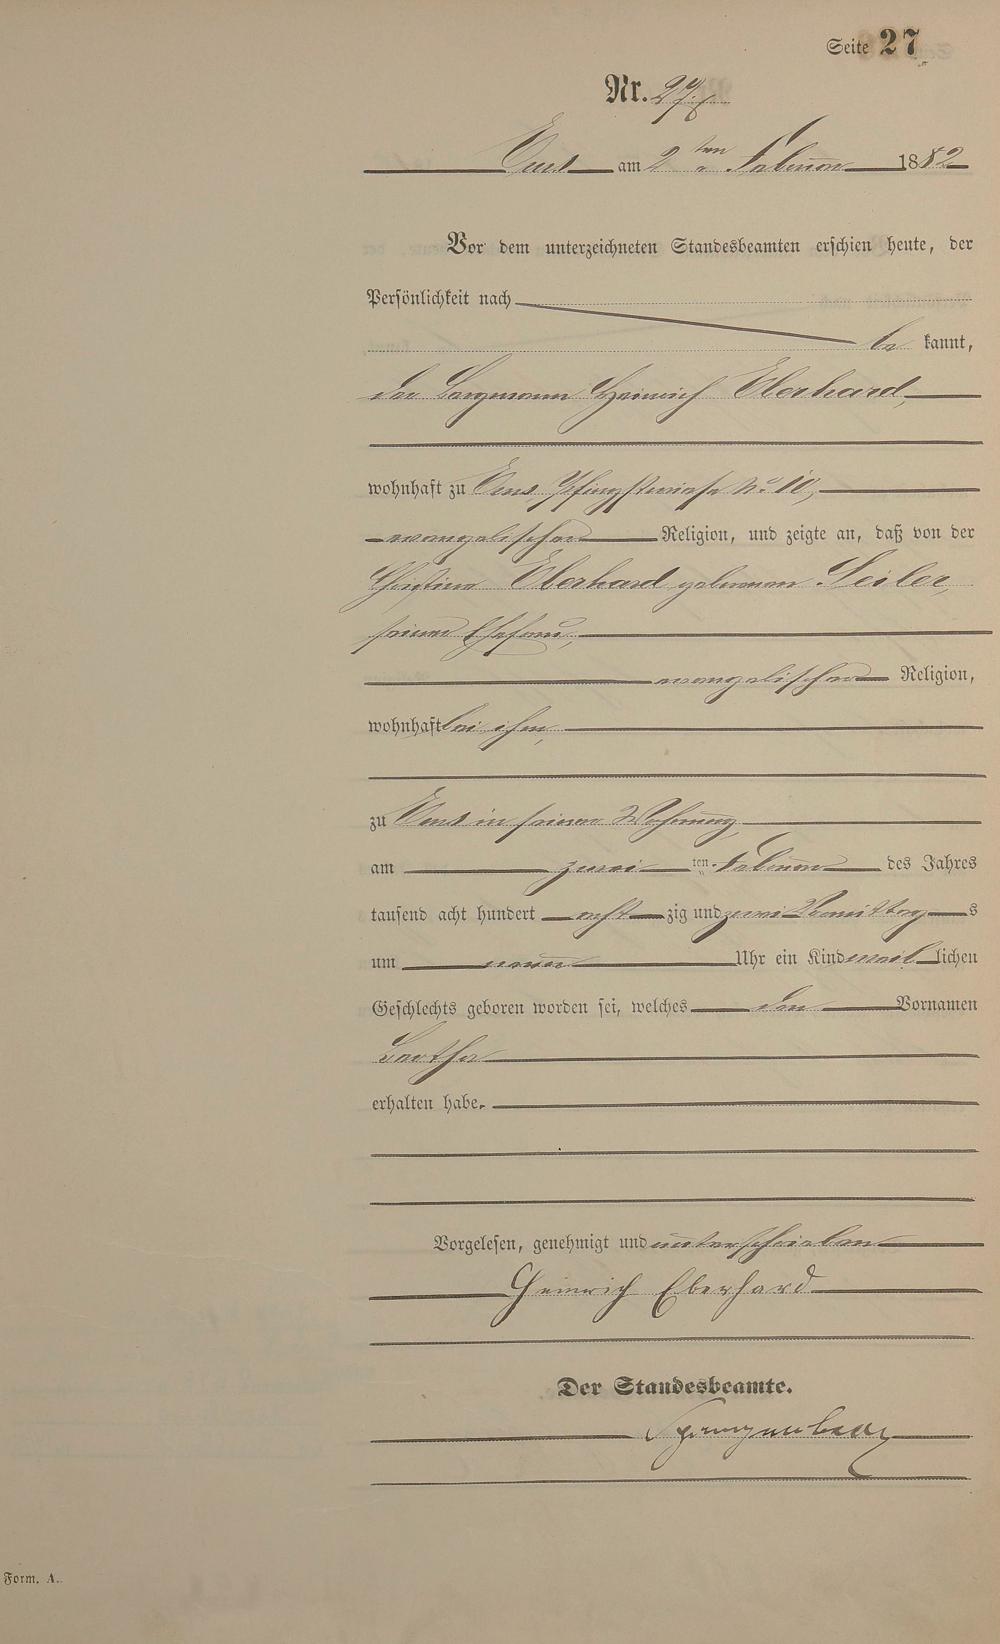 Seite 27
Nr. 27.
Ems am 2ten Februar 1882
Vor dem unterzeichneten Standesbeamten erschien heute, der
Persönlichkeit nach
be kannt,
der Bergmann Heinrich Eberhard,
wohnhaft zu Ems, Pfingstwiese No. 10,
evangelischer Religion, und zeigte an, daß von der
Christine Eberhard geborenen Seiler,
seiner Ehefrau,
evangelischer Religion,
wohnhaft bei ihm,
zu Ems in seiner Wohnung
am zwei ten Februar des Jahres
tausend acht hundert acht zig und zwei Vormittag s
um neun Uhr ein Kind weib lichen
Geschlechts geboren worden sei, welches den Vornamen
Bertha
erhalten habe.
Vorgelesen, genehmigt und unterschrieben
Heinrich Eberhard
Der Standesbeamte.
Form. A.